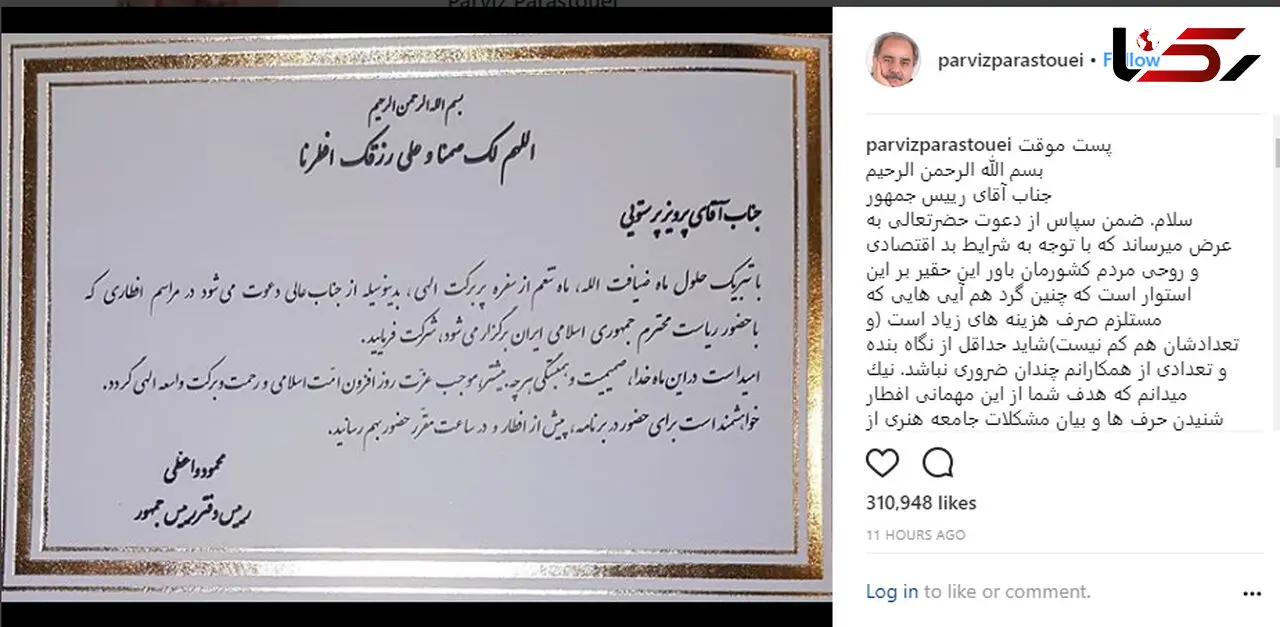 Parviz Parastouei
بسم الله الرحمن الرحیم
اللهم لک صمنا و علی رزقک افطرنا
جناب آقای پرویز پرستویی
با تبریک حلول ماه ضیافت الله، ماه تنعم از سفره پر برکت الهی، بدینوسیله از جناب عالی دعوت می شود در مراسم افطاری که
با حضور ریاست محترم جمهوری اسلامی ایران برگزار می شود، شرکت فرمایید.
امید است در این ماه خدا، صمیمیت و همبستگی هرچه بیشتر، موجب عزت روز افزون امت اسلامی و رحمت و برکت واسعه الهی گردد.
خواهشمند است برای حضور در برنامه، پیش از افطار و در ساعت مقرر حضور بهم رسانید.
محمود واعظی
رییس دفتر رییس جمهور
parvizparastouei • Follow
رکنا
parvizparastouei پست موقت
بسم الله الرحمن الرحیم
جناب آقای رییس جمهور
سلام. ضمن سپاس از دعوت حضرتعالی به
عرض میرساند که با توجه به شرایط بد اقتصادی
و روحی مردم کشورمان باور این حقیر بر این
استوار است که چنین گرد هم آیی هایی که
مستلزم صرف هزینه های زیاد است (و
تعدادشان هم کم نیست)شاید حداقل از نگاه بنده
و تعدادی از همکارانم چندان ضروری نباشد. نیك
میدانم که هدف شما از این مهمانی افطار
شنیدن حرف ها و بیان مشکلات جامعه هنری از
310,948 likes
11 HOURS AGO
Log in to like or comment.